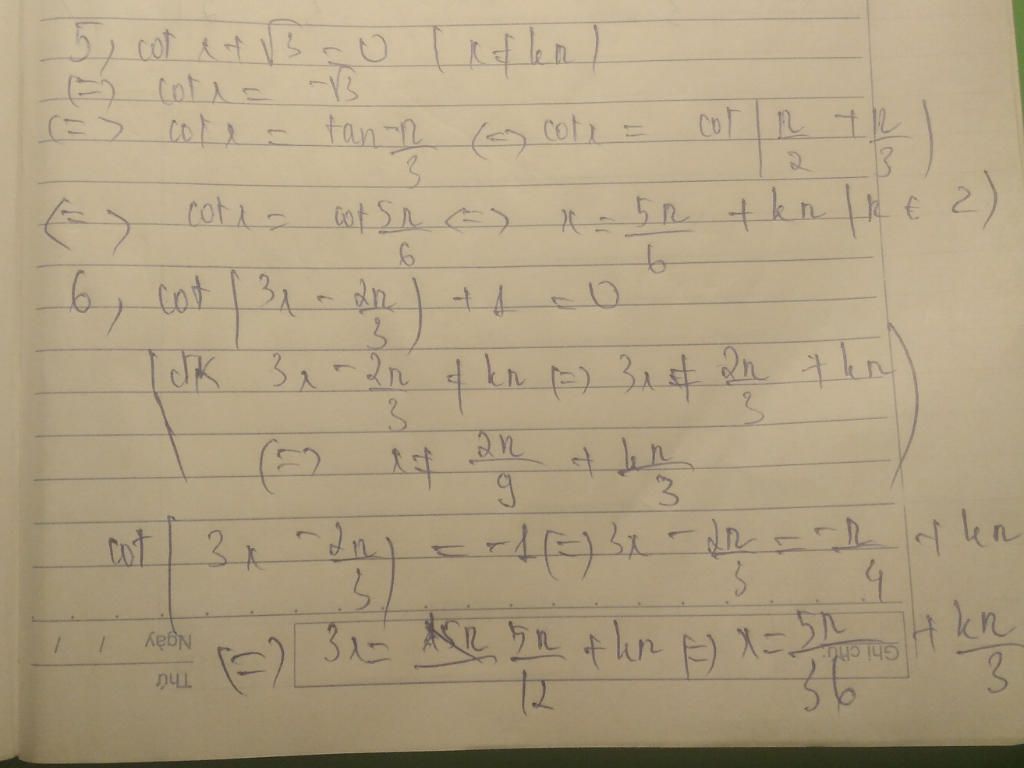 5, cot x + √3 = 0 (x ≠ kπ)
(=) cot x = -√3
(=) cot x = tan -π/3 (=) cot x = cot (π/2 + π/3)
(=) cot x = cot 5π/6 (=) x = 5π/6 + kπ (k ∈ Z)
6, cot (3x - 2π/3) + 1 = 0
(đk 3x - 2π/3 ≠ kπ (=) 3x ≠ 2π/3 + kπ
(=) x ≠ 2π/9 + kπ/3)
cot (3x - 2π/3) = -1 (=) 3x - 2π/3 = -π/4 + kπ
(=) 3x = 5π/12 + kπ (=) x = 5π/36 + kπ/3
Ghi chú:
Ngày / /
Thứ